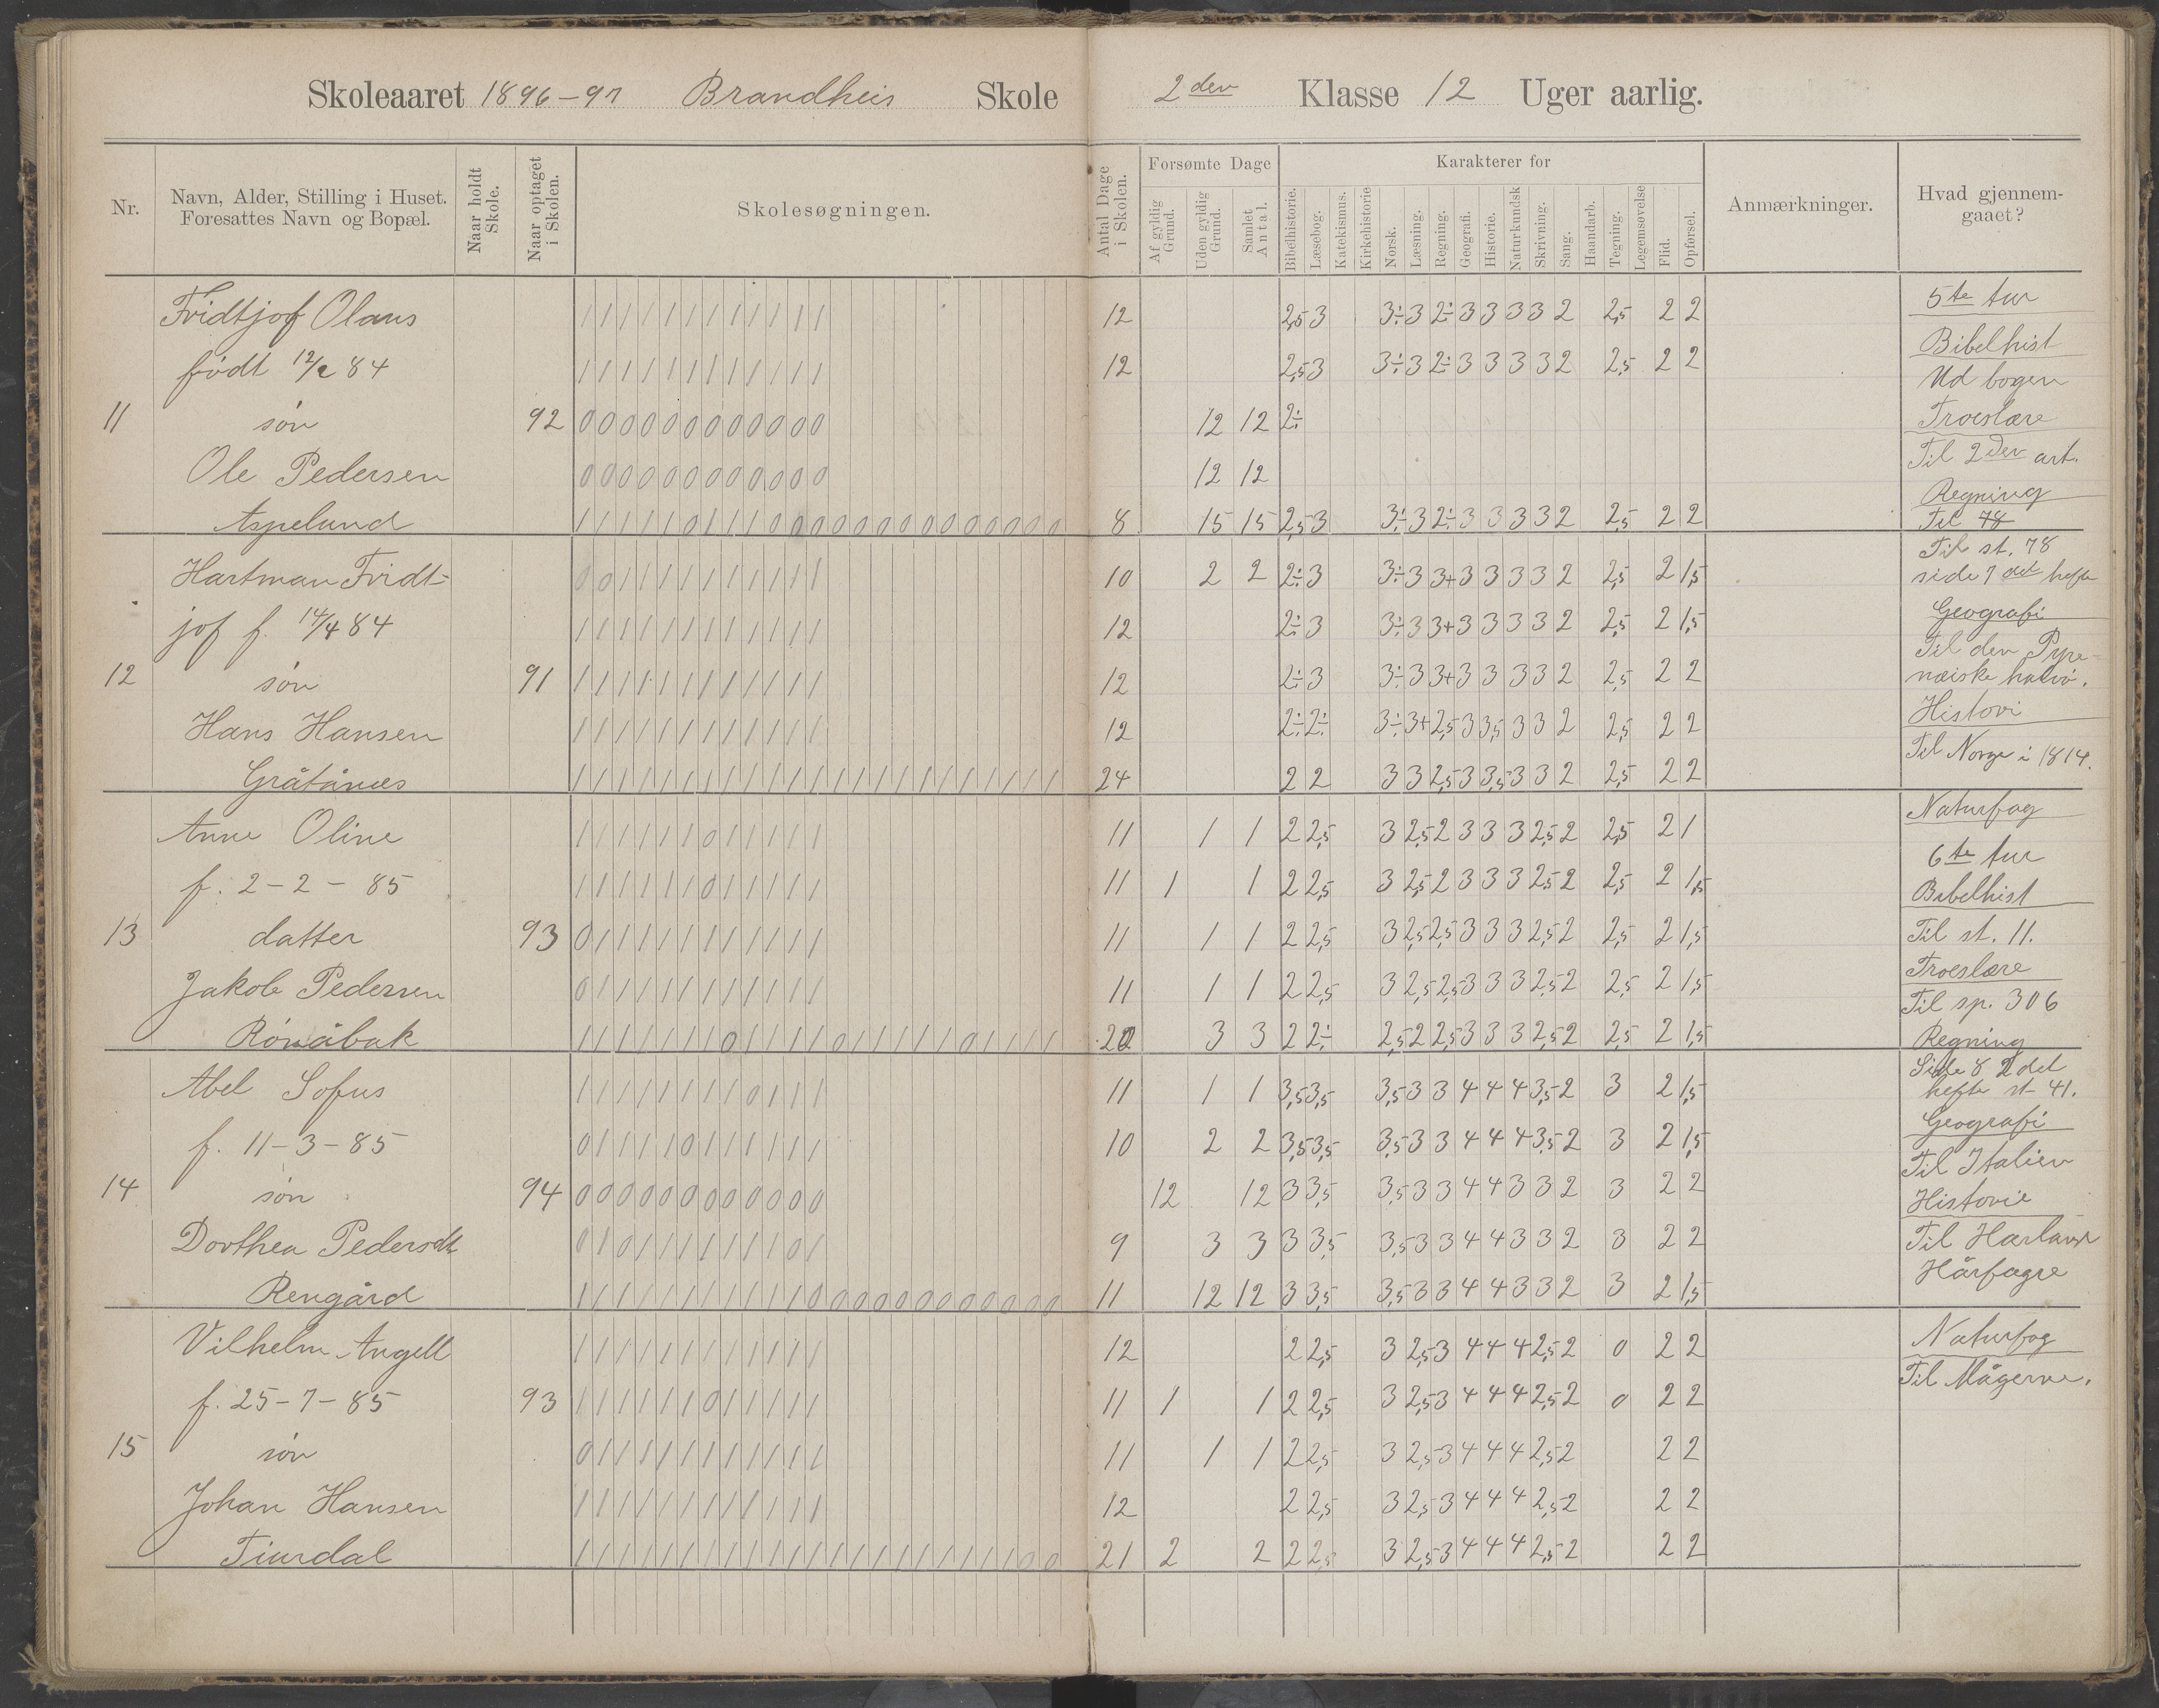 Skoleaaret 1896-97 Brandheis Skole 2den Klasse 12 Uger aarlig.
Nr.
Navn, Alder, Stilling i Huset. Foresattes Navn og Bopæl.
Naar holdt Skole.
Naar optaget i Skolen.
Skolesøgningen.
Antal Dage i Skolen.
Forsømte Dage
Af gyldig Grund.
Uden gyldig Grund.
Samlet Antal.
Karakterer for
Bibelhistorie.
Læsebog.
Katekismus.
Kirkehistorie
Norsk.
Læsning.
Regning.
Geografi.
Historie.
Naturkundsk
Skrivning.
Sang.
Haandarb.
Tegning.
Legemsøvelse
Flid.
Opførsel.
Anmærkninger.
Hvad gjennemgaaet?
Fridtjof Olaus / / / / / / / / / / / / 12 2,5 3 3÷ 3 2÷ 3 3 3 3 2 2,5 2 2
født 12/2 84 / / / / / / / / / / / / 12 2,5 3 3÷ 3 2÷ 3 3 3 3 2 2,5 2 2
11 søn 92 0 0 0 0 0 0 0 0 0 0 0 0 12 12 2÷
Ole Pedersen 0 0 0 0 0 0 0 0 0 0 0 0 12 12
Aspelund 8 15 15 2,5 3 3÷ 3 2÷ 3 3 3 3 2 2,5 2 2
Hartman Fridt- 0 0 / / / / / / / / / / 10 2 2 2÷ 3 3÷ 3 3+ 3 3 3 3 2 2,5 2 1,5
jof f. 14/4 84 / / / / / / / / / / / / 12 2÷ 3 3÷ 3 3+ 3 3 3 3 2 2,5 2 1,5
12 søn 91 / / / / / / / / / / / / 12 2÷ 3 3÷ 3 3+ 3 3 3 3 2 2,5 2 2
Hans Hansen / / / / / / / / / / / / 12 2÷ 2÷ 3÷ 3+ 2,5 3 3,5 3 3 2 2,5 2 2
Gråtånæs / / / / / / / / / / / / / / / / / / / / / / / / 24 2 2 3 3 2,5 3 3,5 3 3 2 2,5 2 2
Anne Oline / / / / / / 0 / / / / / 11 1 1 2 2,5 3 2,5 2 3 3 3 2,5 2 2,5 2 1
f. 2-2-85 / / / / / / 0 / / / / / 11 1 1 2 2,5 3 2,5 2 3 3 3 2,5 2 2,5 2 1,5
13 datter 93 0 / / / / / / / / / / / 11 1 1 2 2,5 3 2,5 2,5 3 3 3 2,5 2 2,5 2 1,5
Jakob Pedersen 0 / / / / / / / / / / / 11 1 1 2 2,5 3 2,5 2,5 3 3 3 2,5 2 2,5 2 1,5
3 3 2 2÷ 2,5 2 2,5 3 3 3 2,5 2 2,5 2 1,5
Abel Sofus / / / / / / / / 0 / / / 11 1 1 3,5 3,5 3,5 3 3 4 4 4 3,5 2 3 2 1,5
f. 11-3-85 0 / / / / 0 / / / / / / 10 2 2 3,5 3,5 3,5 3 3 4 4 4 3,5 2 3 2 1,5
14 søn 94 0 0 0 0 0 0 0 0 0 0 0 0 12 12 3 3,5 3,5 3 3 4 4 3 3 2 3 2 2
Dorthea Pedersdt 0 / 0 / / / / / / / 0 / 9 3 3 3 3,5 3,5 3 3 4 4 3 3 2 3 2 2
Rengård 11 12 12 3 3,5 3,5 3 3 4 4 3 3 2 3 2 1,5
Vilhelm Angell / / / / / / / / / / / / 12 2 2,5 3 2,5 3 4 4 4 2,5 2 0 2 2
f. 25-7-85 93 / / / / / / 0 / / / / / 11 1 1 2 2,5 3 2,5 3 4 4 4 2,5 2 0 2 2
15 søn 0 / / / / / / / / / / / 11 1 1 2 2,5 3 2,5 3 4 4 4 2,5 2 2 2
Johan Hansen / / / / / / / / / / / / 12 2 2,5 3 2,5 3 4 4 4 2,5 2 2 2
21 2 2 2 2,5 3 2,5 3 4 4 4 2,5 2 2 2
5te tur
Bibelhist
Ud bogen
Troeslære
Til 2den art.
Regning
Til 78
Til st. 78
side 7 det hefte
Geografi
Til den Pyre-
næiske halvø.
Histori
Til Norge i 1814.
Naturfag
6te tur
Bibelhist
Til st. 11.
Troeslære
Til sp. 306
Regning
Side 8 2det
hefte st 41.
Geografi
Til Italien
Historie
Til
Hårfagre
Naturfag
Til Mågerne.